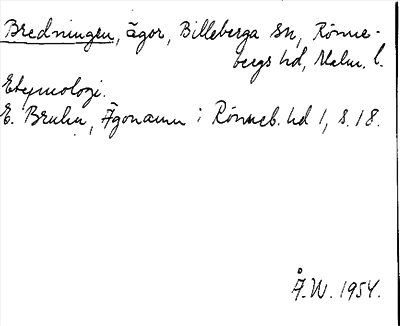 Bredningen, ägor, Billeberga sn, Rönne-
bergs hd, Malm. l.
Etymologi.
E. Bruhn, Ägonamn i Rönneb. hd 1, s. 18.
Å.W. 1954.